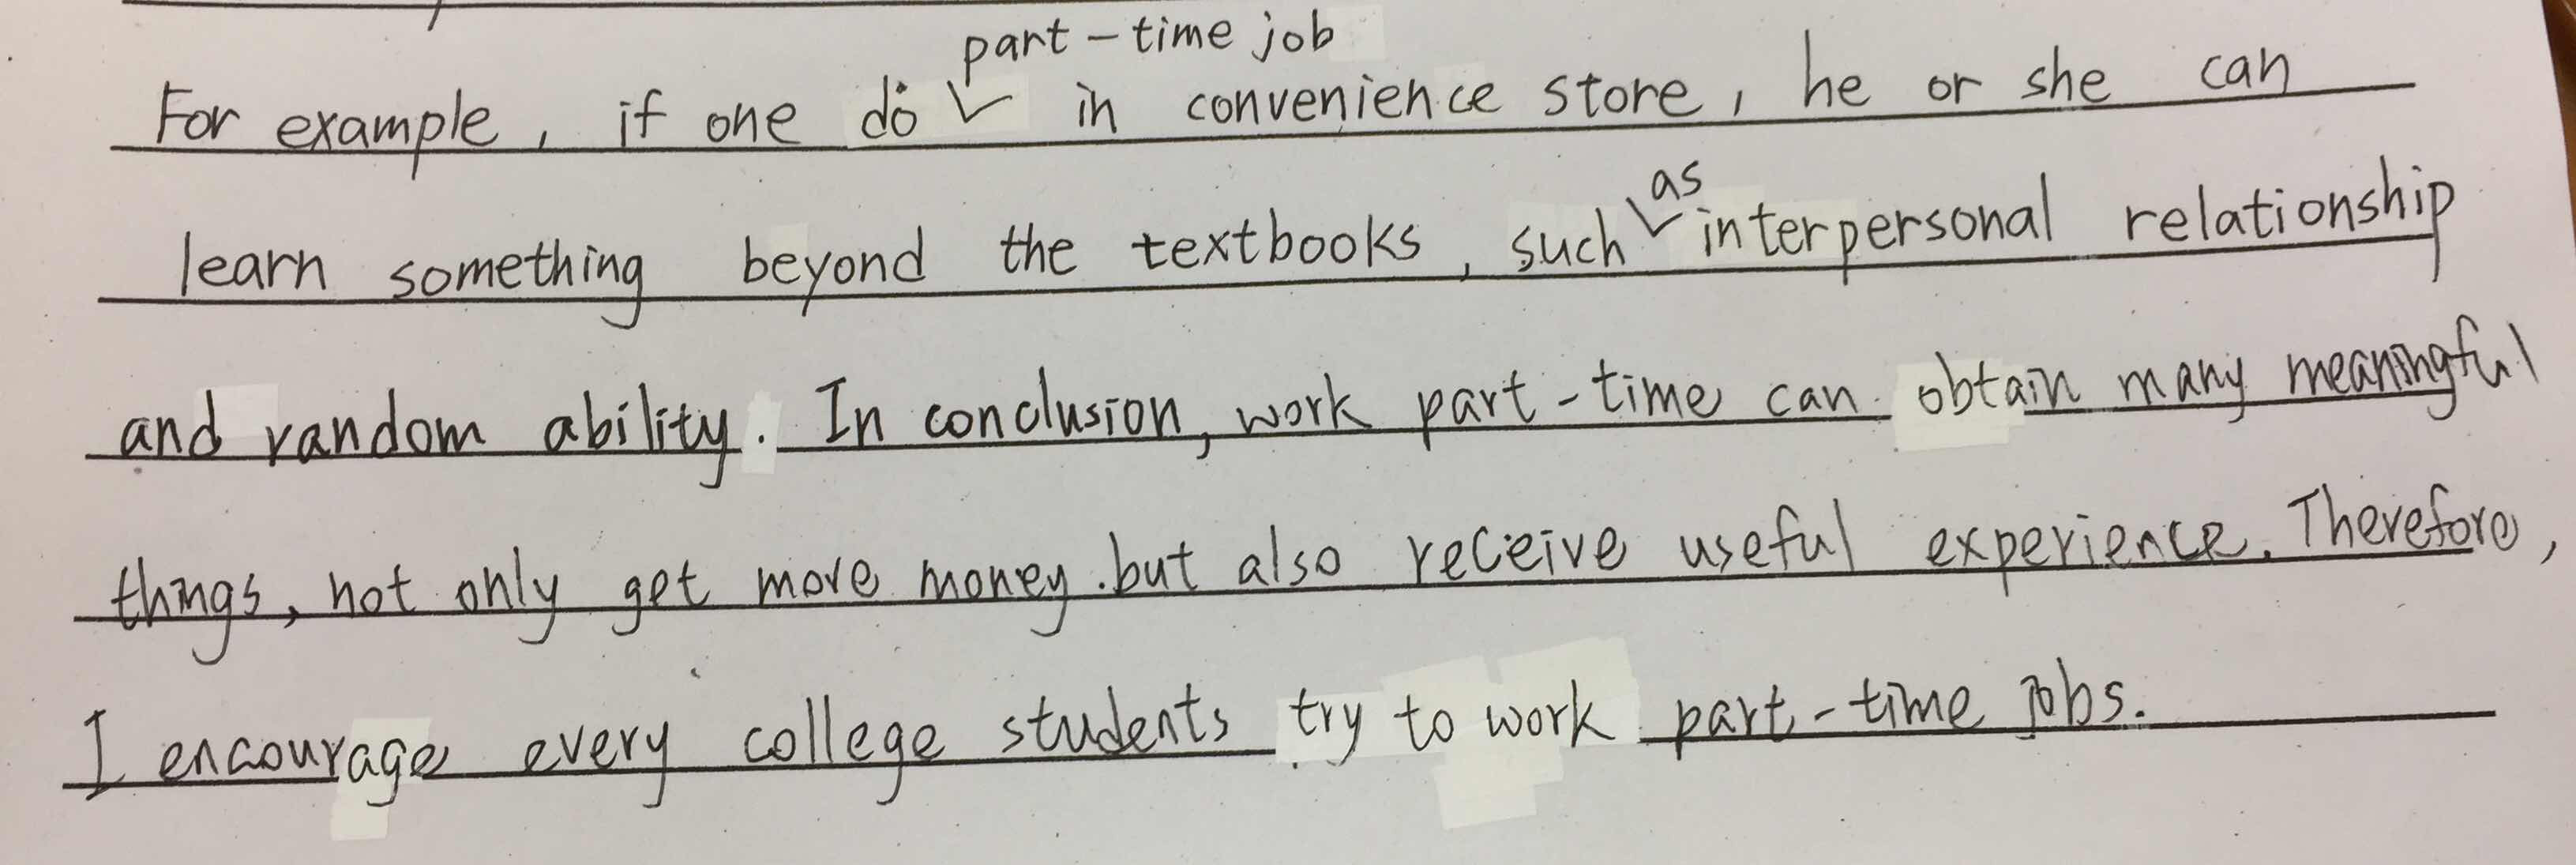 For example, if one do part-time job in convenience store, he or she can
learn something beyond the textbooks, such as interpersonal relationship
and random ability. In conclusion, work part-time can obtain many meaningful
things, not only get more money.but also receive useful experience. Therefore,
I encourage every college students try to work part-time jobs.